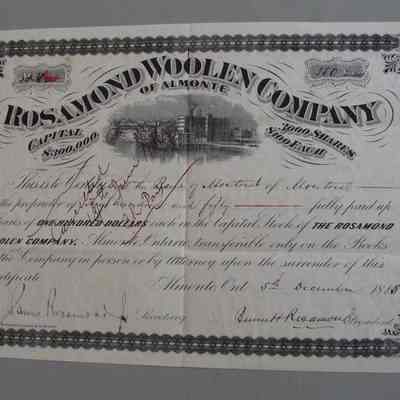 ROSAMOND WOOLEN COMPANY
OF ALMONTE
CAPITAL
$300,000
3000 SHARES
$100 EACH
This is to Certify that the Bank of Montreal of Montreal
the proprietor of and fifty fully paid up
of ONE HUNDRED DOLLARS each in the Capital Stock of THE ROSAMOND
OLEN COMPANY. Almonte Ontario, transferable only on the Books
the Company in person or by attorney upon the surrender of this
ertificate
Almonte Ont 5th December
James Rosamond Jr Secretary Bennett Rosamond President